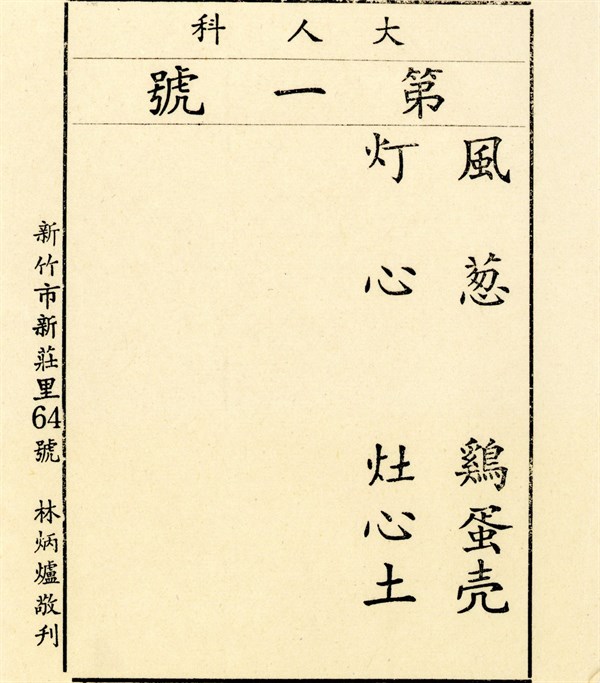 大人科
第一號
風葱　鷄蛋壳
灯心　灶心土
新竹市新莊里64號　林炳爐敬刊